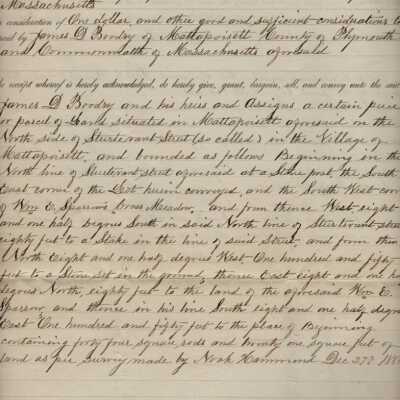 Massachusetts
in consideration of One dollar, and other good and sufficient considerations to
paid by James D Boodry of Mattapoisett County of Plymouth
and Commonwealth of Massachusetts aforesaid
the receipt whereof is hereby acknowledged, do hereby give, grant, bargain, sell, and convey unto the said
James D Boodry and his heirs and Assigns a certain piece
or parcel of Land situated in Mattapoisett aforesaid on the
North side of Sturtevant Street (so called) in the Village of
Mattapoisett, and bounded as follows Beginning in the
North line of Sturtevant street aforesaid at a Stone post, the South
East corner of the Lot herein conveyed, and the South West cor
of Wm E. Sparrow Cross Meadow, and from thence West, eight
and one half degrees South in said North line of Sturtevant street
eighty feet to a Stake in the line of said Street, and from then
North Eight and one half degrees West One hundred and fifty
feet to a Stone set in the ground, thence East eight and one ha
degrees North, eighty feet to the land of the aforesaid Wm E.
Sparrow, and thence in his line South eight and one half degre
East One hundred and fifty feet to the place of Beginning
containing forty four square rods and twenty one square feet of
land as per survey made by Noah Hammond Dec 27th